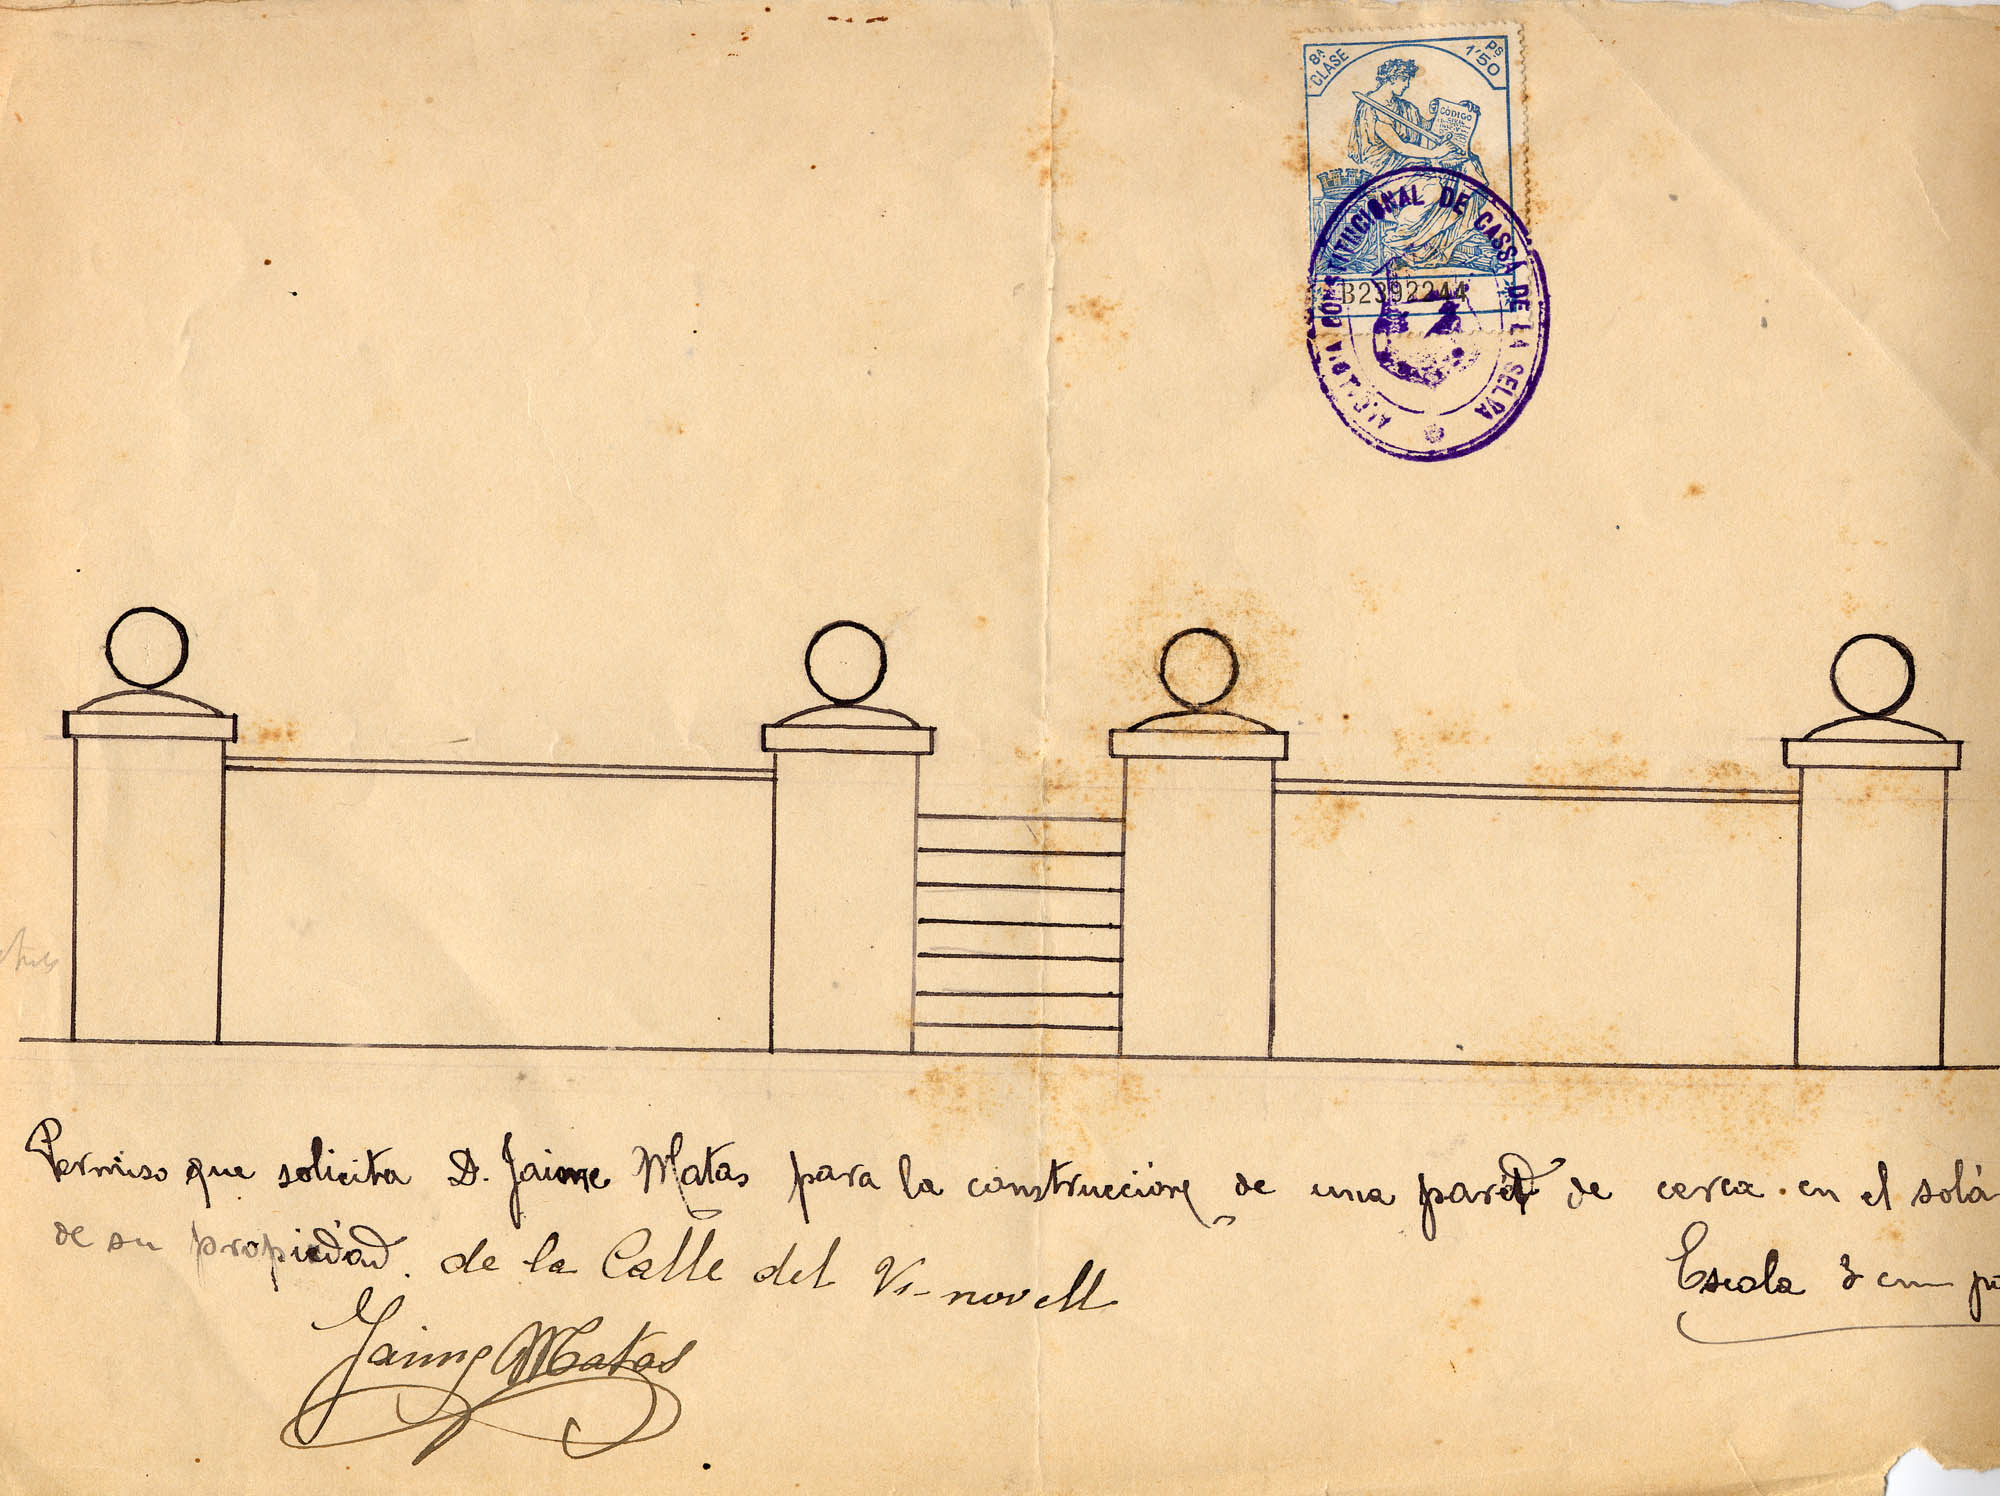 8ª CLASE
Ps 1'50
CÓDIGO
ALCALDIA CONSTITUCIONAL DE CASSÁ DE LA SELVA
B2392244
Permiso que solicita D. Jaime Matas para la construcción de una pared de cerca en el solá
de su propiedad. de la Calle del Vi-novell
Escala 2 cm
Jaime Matas